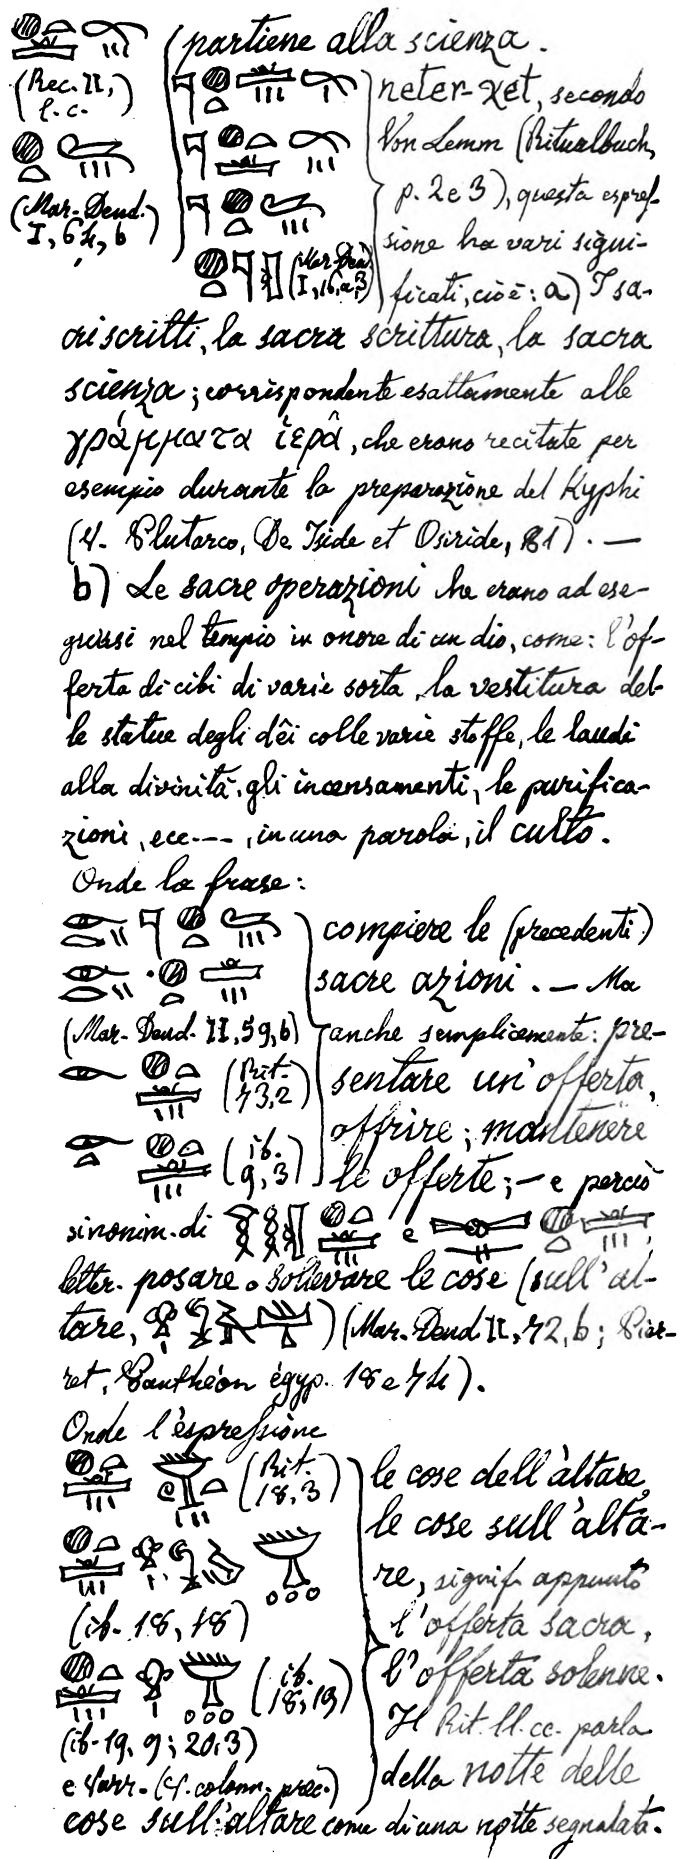 partiene alla scienza.
(Rec. II,
l. c.
neter-χet, secondo
Von Lemm (Ritualbuch,
(Mar. Dend.
I, 64, b)
p. 2 e 3), questa espres-
sione ha vari signi-
(Mar. Dend.
I, 16, a, 3)
ficati, cioè: a) I sa-
cri scritti, la sacra scrittura, la sacra
scienza; corrispondente esattamente alle
γράμματα ἱερᾶ, che erano recitate per
esempio durante la preparazione del Kyphi
(V. Plutarco, De Iside et Osiride, 81). —
b) Le sacre operazioni che erano ad ese-
guirsi nel tempio in onore di un dio, come: l'of-
ferta di cibi di varie sorta, la vestitura del-
le statue degli dêi colle varie stoffe, le laudi
alla divinità, gli incensamenti, le purifica-
zioni, ecc---, in una parola, il culto.
Onde la frase:
compiere le (precedenti)
sacre azioni. — Ma
(Mar. Dend. II, 59, b)
anche semplicemente: pre-
(Rit.
73,2)
sentare un'offerta,
offrire; mantenere
(ib.
9,3)
le offerte; — e perciò
sinonim. di e
letter. posare o sollevare le cose (sull'al-
tare, ) (Mar. Dend II, 72, b; Pier-
ret, Panthéon égyp. 18 e 74).
Onde l'espressione
(Rit.
18,3)
le cose dell'altare,
le cose sull'alta-
re, signif. appunto
(ib. 18, 18)
l'offerta sacra,
(ib.
18,19)
l'offerta solenne.
Il Rit. ll. cc. parla
(ib. 19, 9; 20,3)
della notte delle
e varr. (V. colonn. prec.)
cose sull'altare come di una notte segnalata.